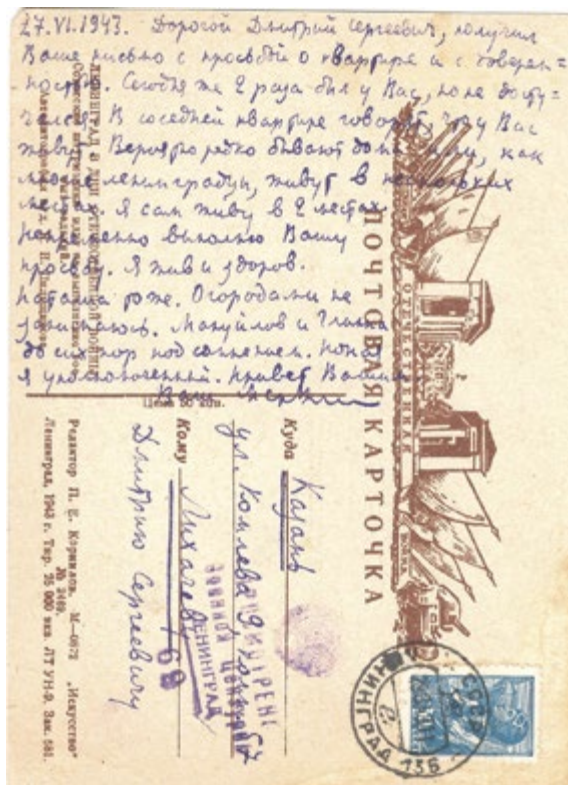 27.VI.1943. Дорогой Дмитрий Сергеевич, получил
Ваше письмо с просьбой о квартире и с доверен=
ностью. Сегодня же 2 раза был у Вас, но не досту-
чался. В соседней квартире говорят, что у Вас
живут. Вероятно редко бывают дома или, как
многие ленинградцы, живут в нескольких
местах. Я сам живу в 2 местах.
выполню Вашу
просьбу. Я жив и здоров.
Наташа тоже. Огородами не
занимаюсь. Мануйлов и
до сих пор под сомнением.
Я уполномоченный. Привет Вашим
Ваш
ЛЕНИНГРАД В ДНИ ОТЕЧЕСТВЕННОЙ ВОЙНЫ
Цена 30 коп.
ПОЧТОВАЯ КАРТОЧКА
ОТЕЧЕСТВЕННАЯ
ВОЙНА
Куда Казань
ул. Комлева 9
Кому Лихачеву
Дмитрию Сергеевичу
ПРОСМОТРЕНО
ВОЕННОЙ ЦЕНЗУРОЙ
ЛЕНИНГРАД
69
Редактор П. Е. Корнилов. М—0672 „Искусство"
№ 2469.
Ленинград, 1943 г. Тир. 25 000 экз. ЛТ УН-9. Зак. 581.
СССР
ЛЕНИНГРАД 136